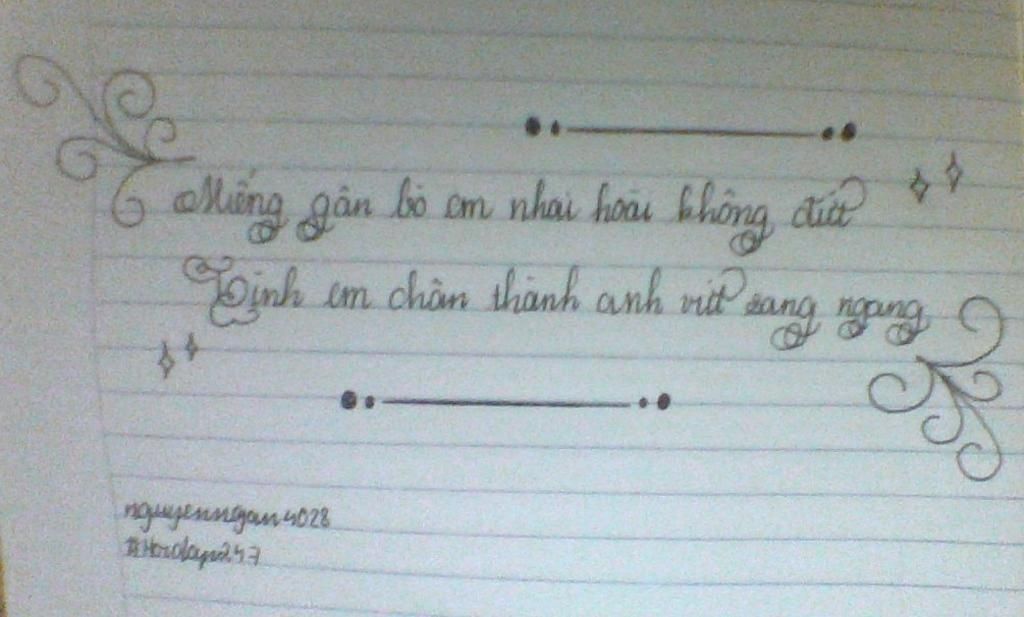 Miếng gân bò em nhai hoài không đứt
Tình em chân thành anh vứt sang ngang
nguyenngan4028